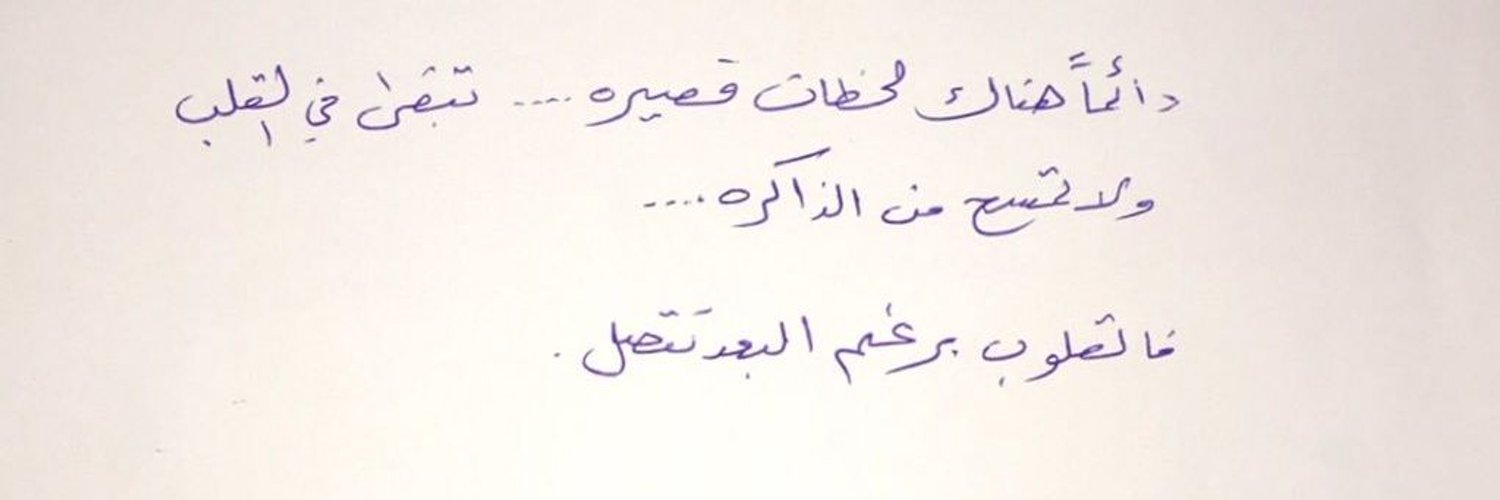 دائماً هناك لحظات قصيره .... تبقى في القلب
ولا تمسح من الذاكره ....
فالقلوب برغم البعد تَتصل .